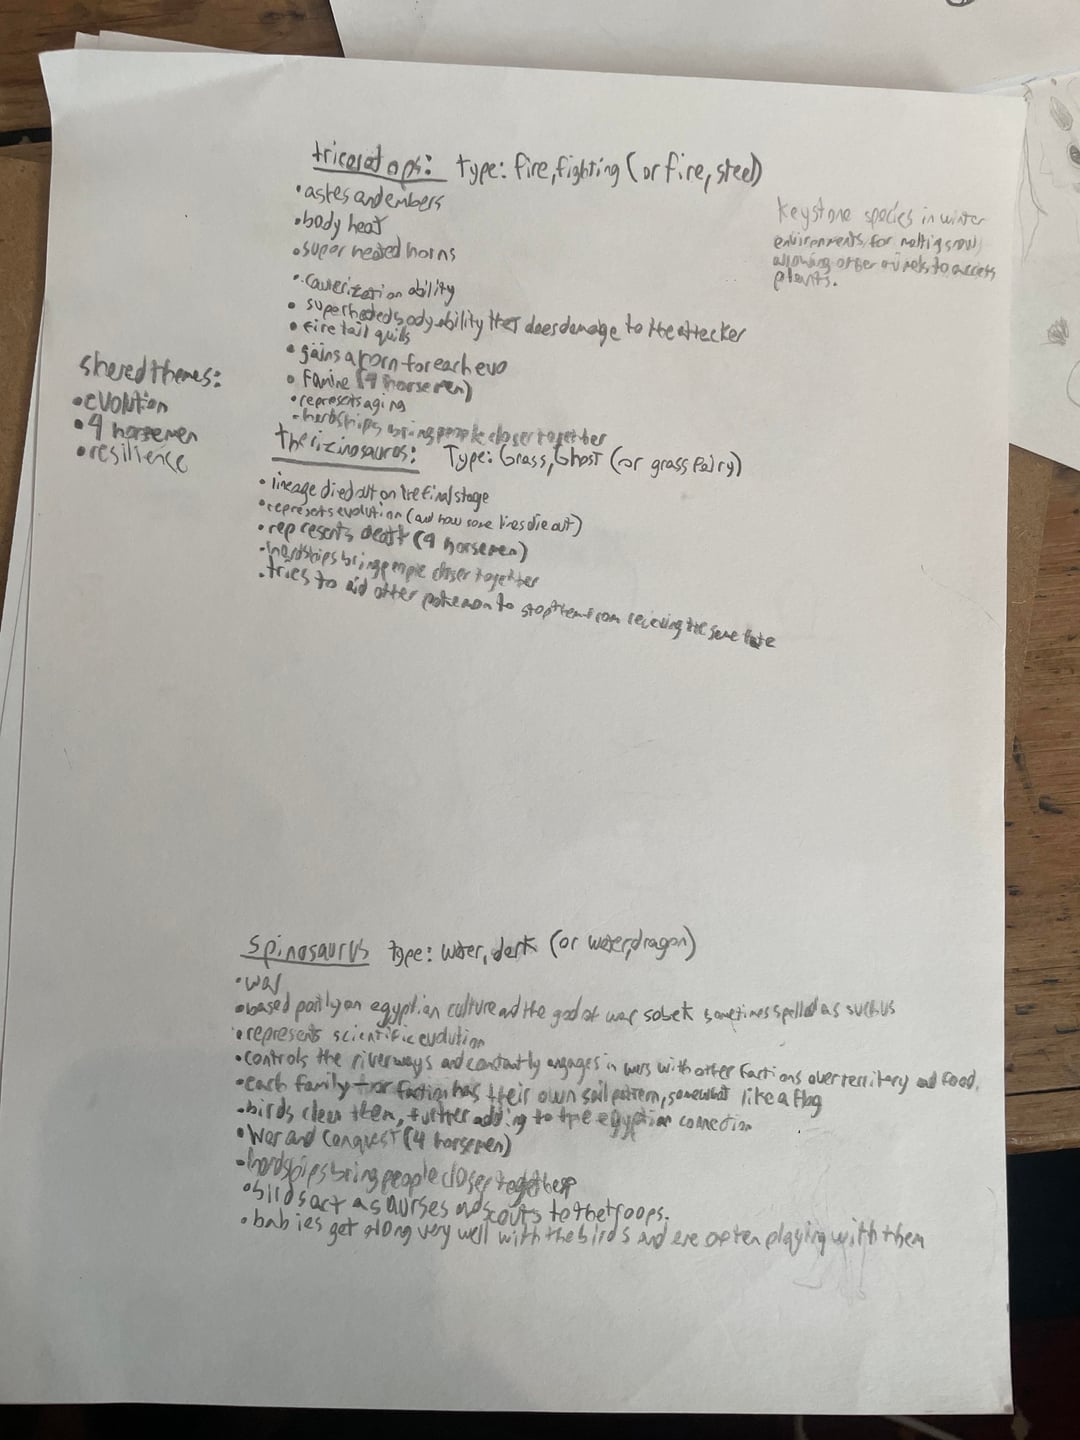 triceratops: Type: fire, fighting (or fire, steel)
• ashes and embers
• body heat
• super heated horns
• cauterization ability
• superheated body ability that does damage to the attacker
• fire tail quills
• gains a horn for each evo
• Famine (4 horsemen)
• represents aging
• hardships bring people closer together
Keystone species in winter
environments for melting snow,
allowing other animals to access
plants.
shared themes:
• evolution
• 4 horsemen
• resilience
therizinosaurus: Type: Grass, Ghost (or grass fairy)
• lineage died out on the final stage
• represents evolution (and how some lines die out)
• represents death (4 horsemen)
• hardships bring people closer together
• tries to aid other pokemon to stop them from recieving the same fate
Spinosaurus type: water, dark (or water, dragon)
• war
• based partly on egyptian culture and the god of war sobek sometimes spelled as suchus
• represents scientific evolution
• controls the riverways and constantly engages in wars with other factions over territory and food.
• each family or faction has their own sail pattern, somewhat like a flag
• birds clean them, further adding to the egyptian connection
• War and Conquest (4 horsemen)
• hardships bring people closer together
• birds act as nurses and scouts to the troops.
• babies get along very well with the birds and are often playing with them